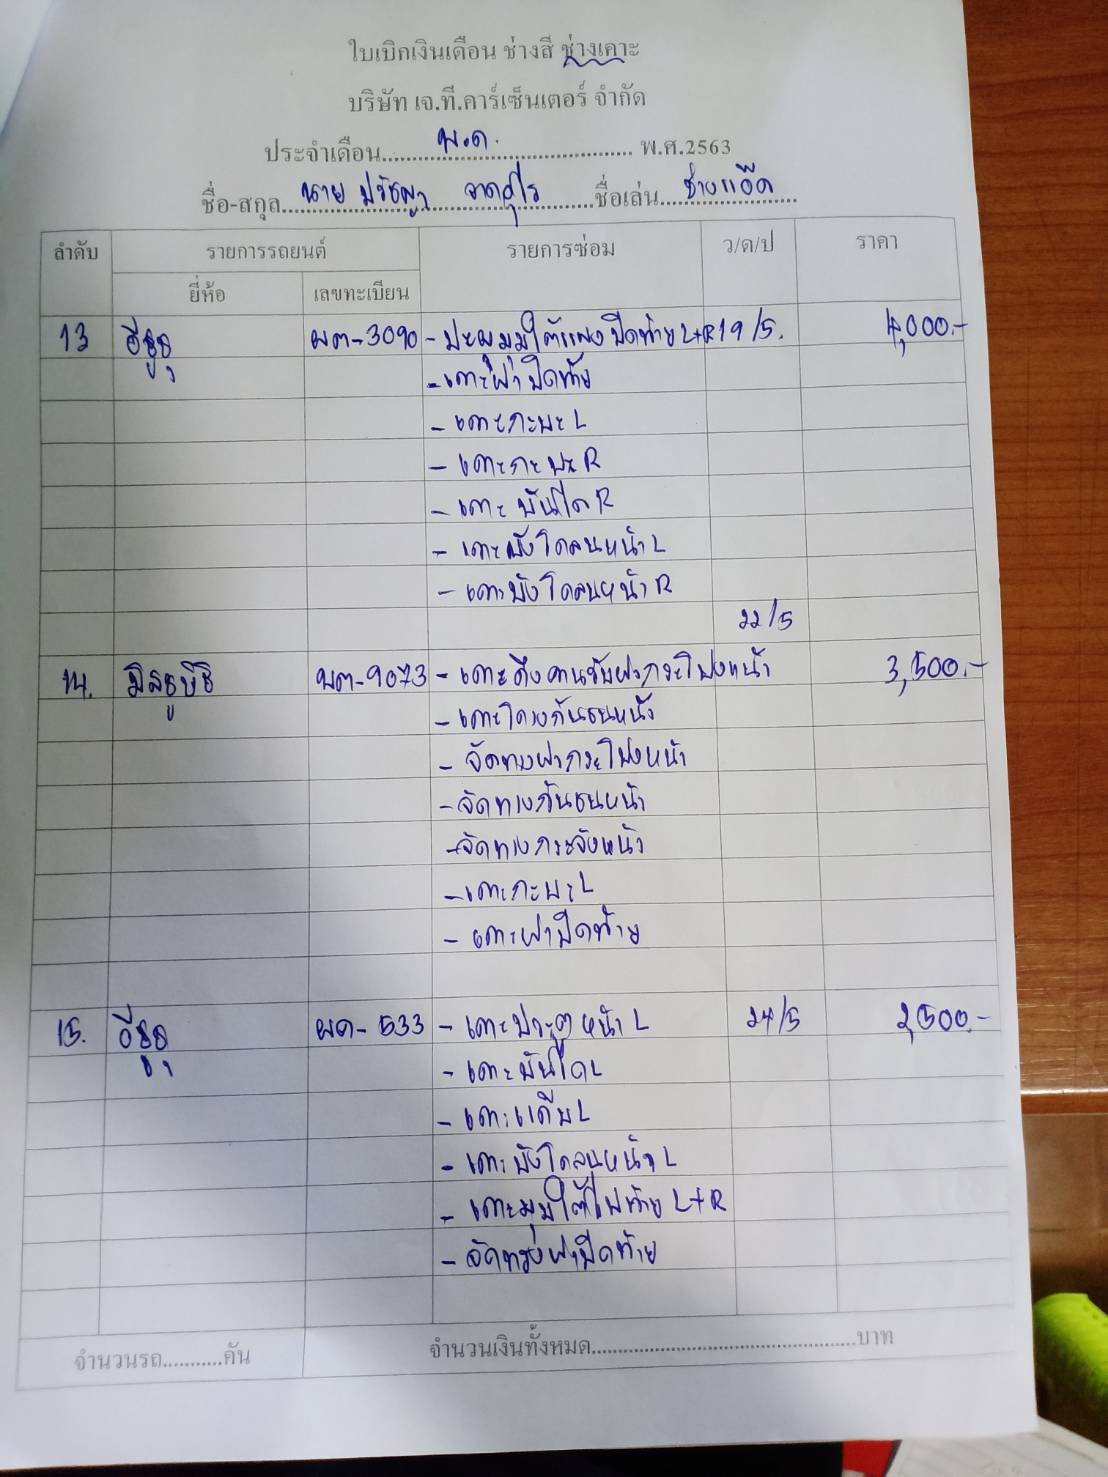 ใบเบิกเงินเดือน ช่างสี ช่างเคาะ
บริษัท เจ.ที.คาร์เซ็นเตอร์ จำกัด
ประจำเดือน พ.ค. พ.ศ.2563
ชื่อ-สกุล นาย ปรัชญา ชื่อเล่น ช่างแอ๊ด
ลำดับ รายการรถยนต์ รายการซ่อม ว/ด/ป ราคา
ยี่ห้อ เลขทะเบียน
13 อีซูซุ ผต-3090 - ปะผุมุมใต้แผงปิดท้าย L+R 19/5. 4,000.-
- เคาะฝาปิดท้าย
- เคาะกะบะ L
- เคาะกะบะ R
- เคาะบันได R
- เคาะบังโคลนหน้า L
- เคาะบังโคลนหน้า R
22/5
14. มิตซูบิชิ ผต-9073 - เคาะดึงคานรับฝากระโปงหน้า 3,500.-
- เคาะโครงกันชนหน้า
- จัดทรงฝากระโปงหน้า
- จัดทรงกันชนหน้า
- จัดทรงกระจังหน้า
- เคาะกะบะ L
- เคาะฝาปิดท้าย
15. อีซูซุ ผด-533 - เคาะประตูหน้า L 24/5 2,500.-
- เคาะบันได L
- เคาะแค๊บ L
- เคาะบังโคลนหน้า L
- เคาะมุมใต้ไฟท้าย L+R
- จัดทรงฝาปิดท้าย
จำนวนรถ...........คัน จำนวนเงินทั้งหมด..........บาท